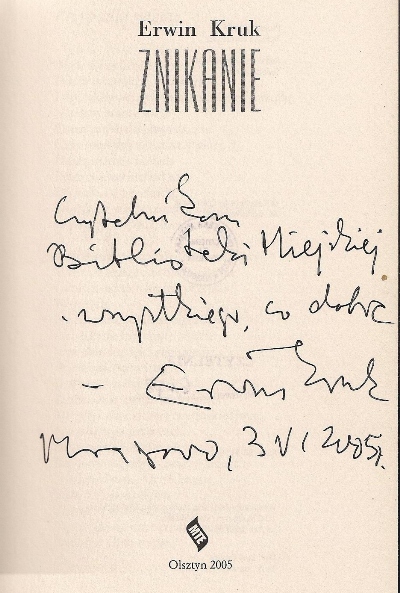 Erwin Kruk
ZNIKANIE
Czytelnikom
Biblioteki Miejskiej
- wszystkiego, co dobre
- Erwin Kruk
Mrągowo, 3 VI 2005 r.
MTE
Olsztyn 2005